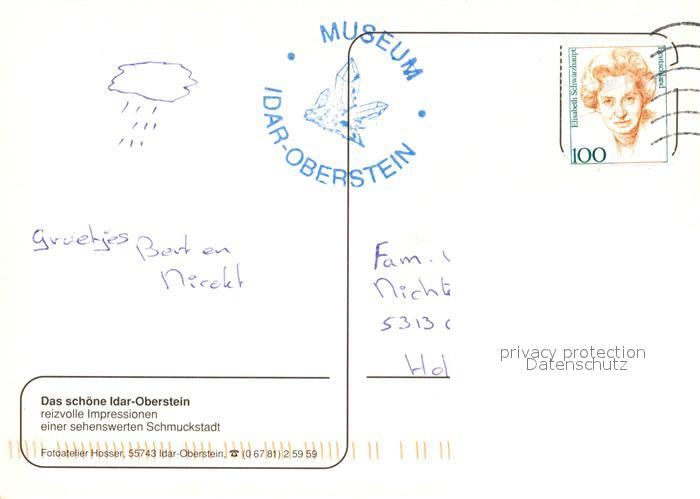 MUSEUM
IDAR-OBERSTEIN
Elisabeth Schwarzhaupt
Deutschland
100
Groetjes Bart en
Nicolet
Fam.
5313
privacy protection
Datenschutz
Das schöne Idar-Oberstein
reizvolle Impressionen
einer sehenswerten Schmuckstadt
Fotoatelier Hosser, 55743 Idar-Oberstein, ☎ (0 67 81) 2 59 59